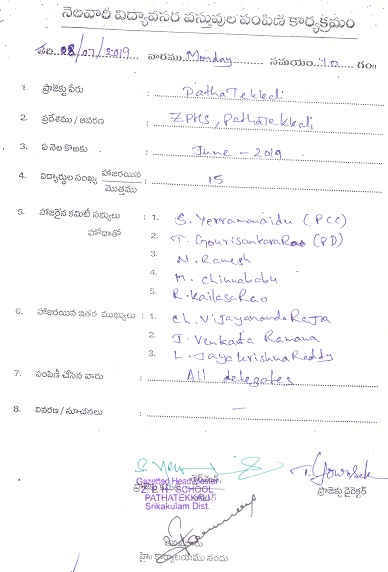 నెలవారీ విద్యావసర వస్తువుల పంపిణీ కార్యక్రమం
తేది. 08/07/2019 వారము Monday సమయం. 10 గం॥
1. ప్రాజెక్టు పేరు : PathaTekkali
2. ప్రదేశము / ఆవరణ : ZPHS, PathaTekkali
3. ఏ నెల కొఱకు : June - 2019
4. విద్యార్థుల సంఖ్య హాజరయిన / మొత్తము : 15
5. హాజరైన కమిటీ సభ్యులు : 1. S. Yerramanaidu (PCC)
హోదాతో 2. T. GourisankaraRao (PD)
3. N. Ramesh
4. M. Chinnababu
5. R. KailasaRao
6. హాజరయిన ఇతర ముఖ్యులు : 1. Ch. Vijayananda Raja
2. J. Venkata Ramana
3. L. JayakrishnaReddy
7. పంపిణీ చేసిన వారు : All delegates
8. వివరణ / సూచనలు : —
Gazetted Headmaster
Z P H SCHOOL
PATHATEKKALI
Srikakulam Dist.
ప్రాజెక్టు డైరెక్టర్